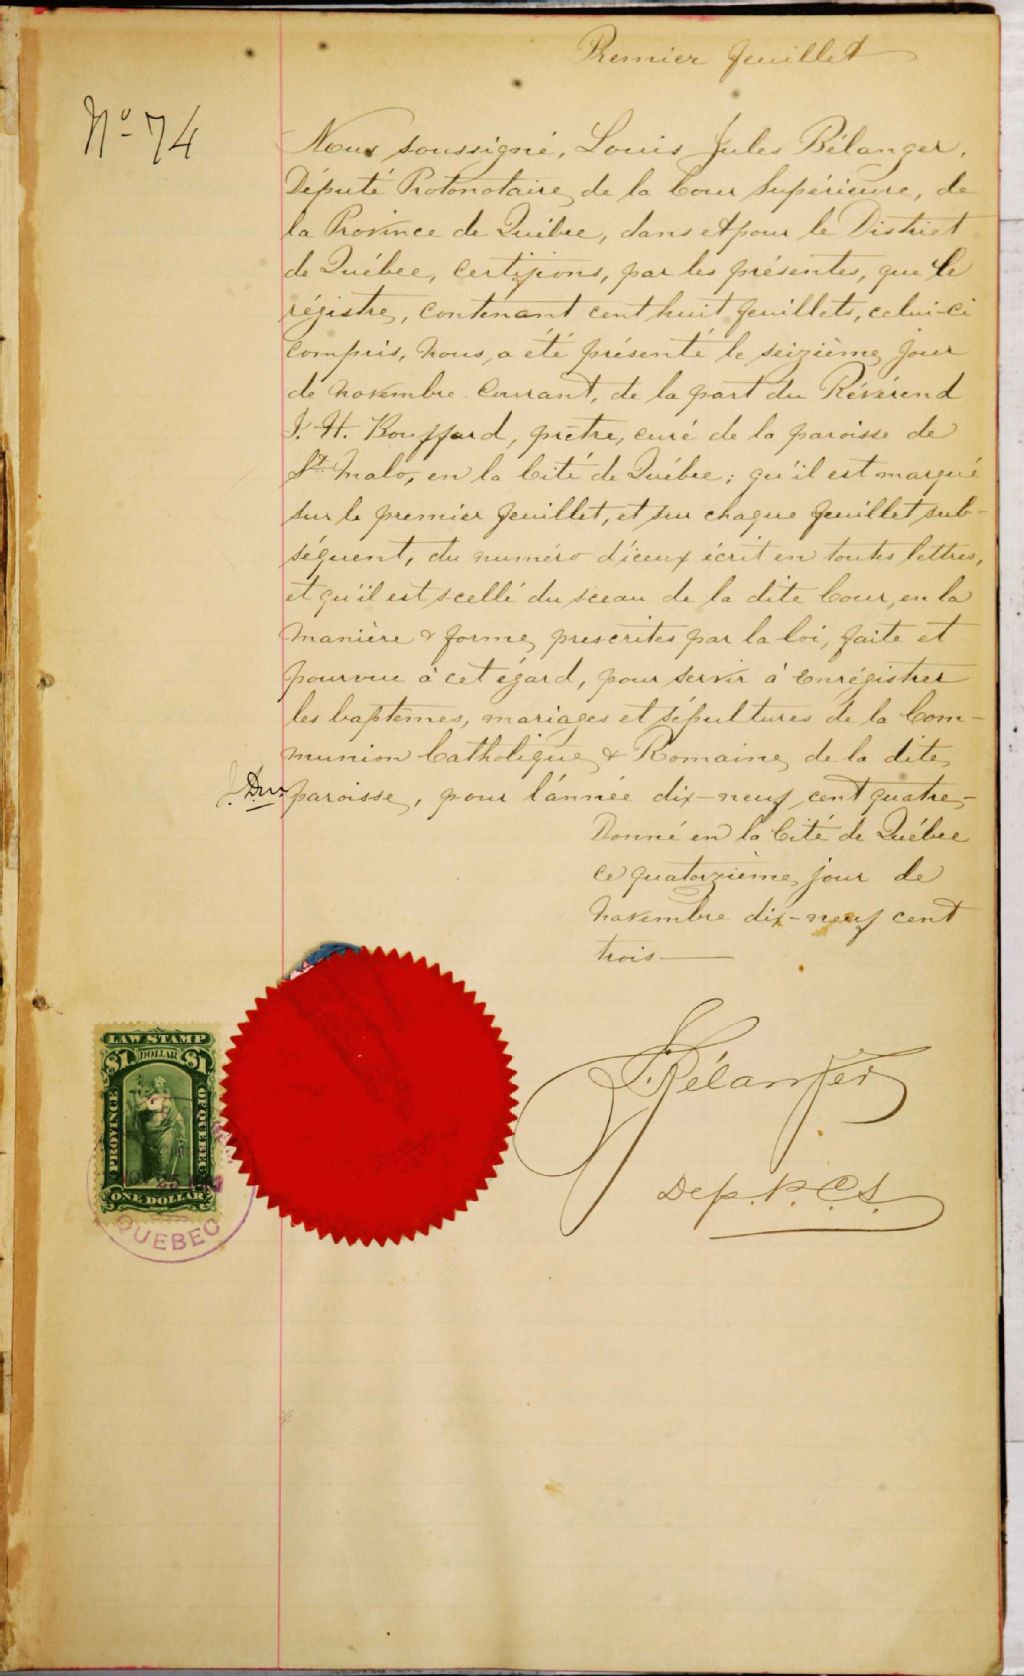 Premier feuillet
No 74
Nous soussigné, Louis Jules Bélanger,
Député Protonotaire de la Cour Supérieure, de
la Province de Québec, dans et pour le District
de Québec, certifions, par les présentes, que le
régistre, contenant cent huit feuillets, celui-ci
compris, nous a été présenté le seizième jour
de novembre courant, de la part du Révérend
J. H. Bouffard, prêtre, curé de la paroisse de
St. Malo, en la Cité de Québec; qu'il est marqué
sur le premier feuillet, et sur chaque feuillet sub-
séquent, du numéro d'iceux écrit en toutes lettres,
et qu'il est scellé du sceau de la dite Cour, en la
manière & forme prescrites par la loi, faite et
pourvue à cet égard, pour servir à enrégistrer
les baptêmes, mariages et sépultures de la Com-
munion Catholique & Romaine de la dite
paroisse, pour l'année dix-neuf cent quatre-
Donné en la Cité de Québec
ce quatorzième jour de
novembre dix-neuf cent
trois
LAW STAMP
$1 DOLLAR $1
PROVINCE OF QUEBEC
ONE DOLLAR
QUEBEC
J. Bélanger
Dep. P. C. S.